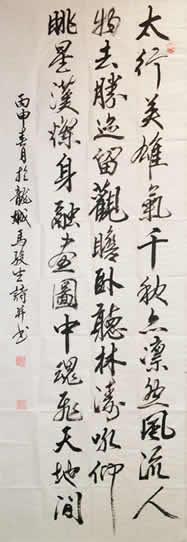 太行英雄氣千秋亦凜然風流人
物去勝迹留觀瞻卧聽林濤吼仰
眺星漢燦身融畫圖中魂飛天地間
丙申春月於龍城馬生詩並書